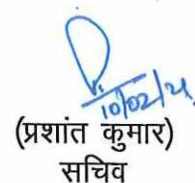 10/02/21
(प्रशांत कुमार)
सचिव